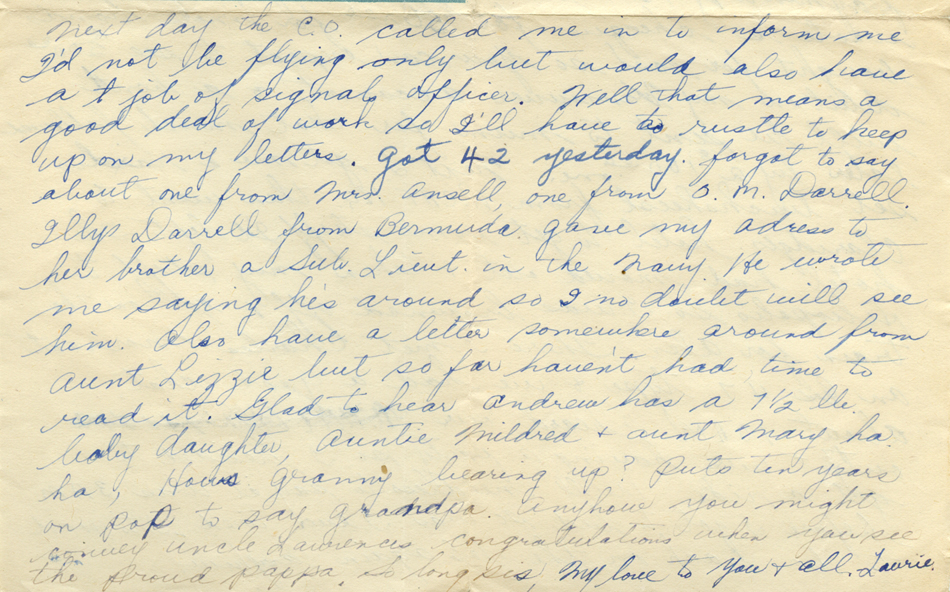 next day the C.O. called me in to inform me
I'd not be flying only but would also have
a t job of signals officer. Well that means a
good deal of work so I'll have to rustle to keep
up on my letters. Got 42 yesterday. forgot to say
about one from Mrs. Ansell, one from O. M. Darrell.
Illys Darrell from Bermuda gave my adress to
her brother a Sub. Lieut. in the Navy. He wrote
me saying he's around so I no doubt will see
him. Also have a letter somewhere around from
Aunt Lizzie but so far haven't had time to
read it. Glad to hear Andrew has a 7 1/2 lb.
baby daughter, Auntie Mildred + aunt Mary ha.
ha, Hows Granny bearing up? Puts ten years
on pop to say grandpa. Anyhow you might
convey uncle Lawrences congratulations when you see
the proud pappa. So long sis, My love to you + all. Laurie.